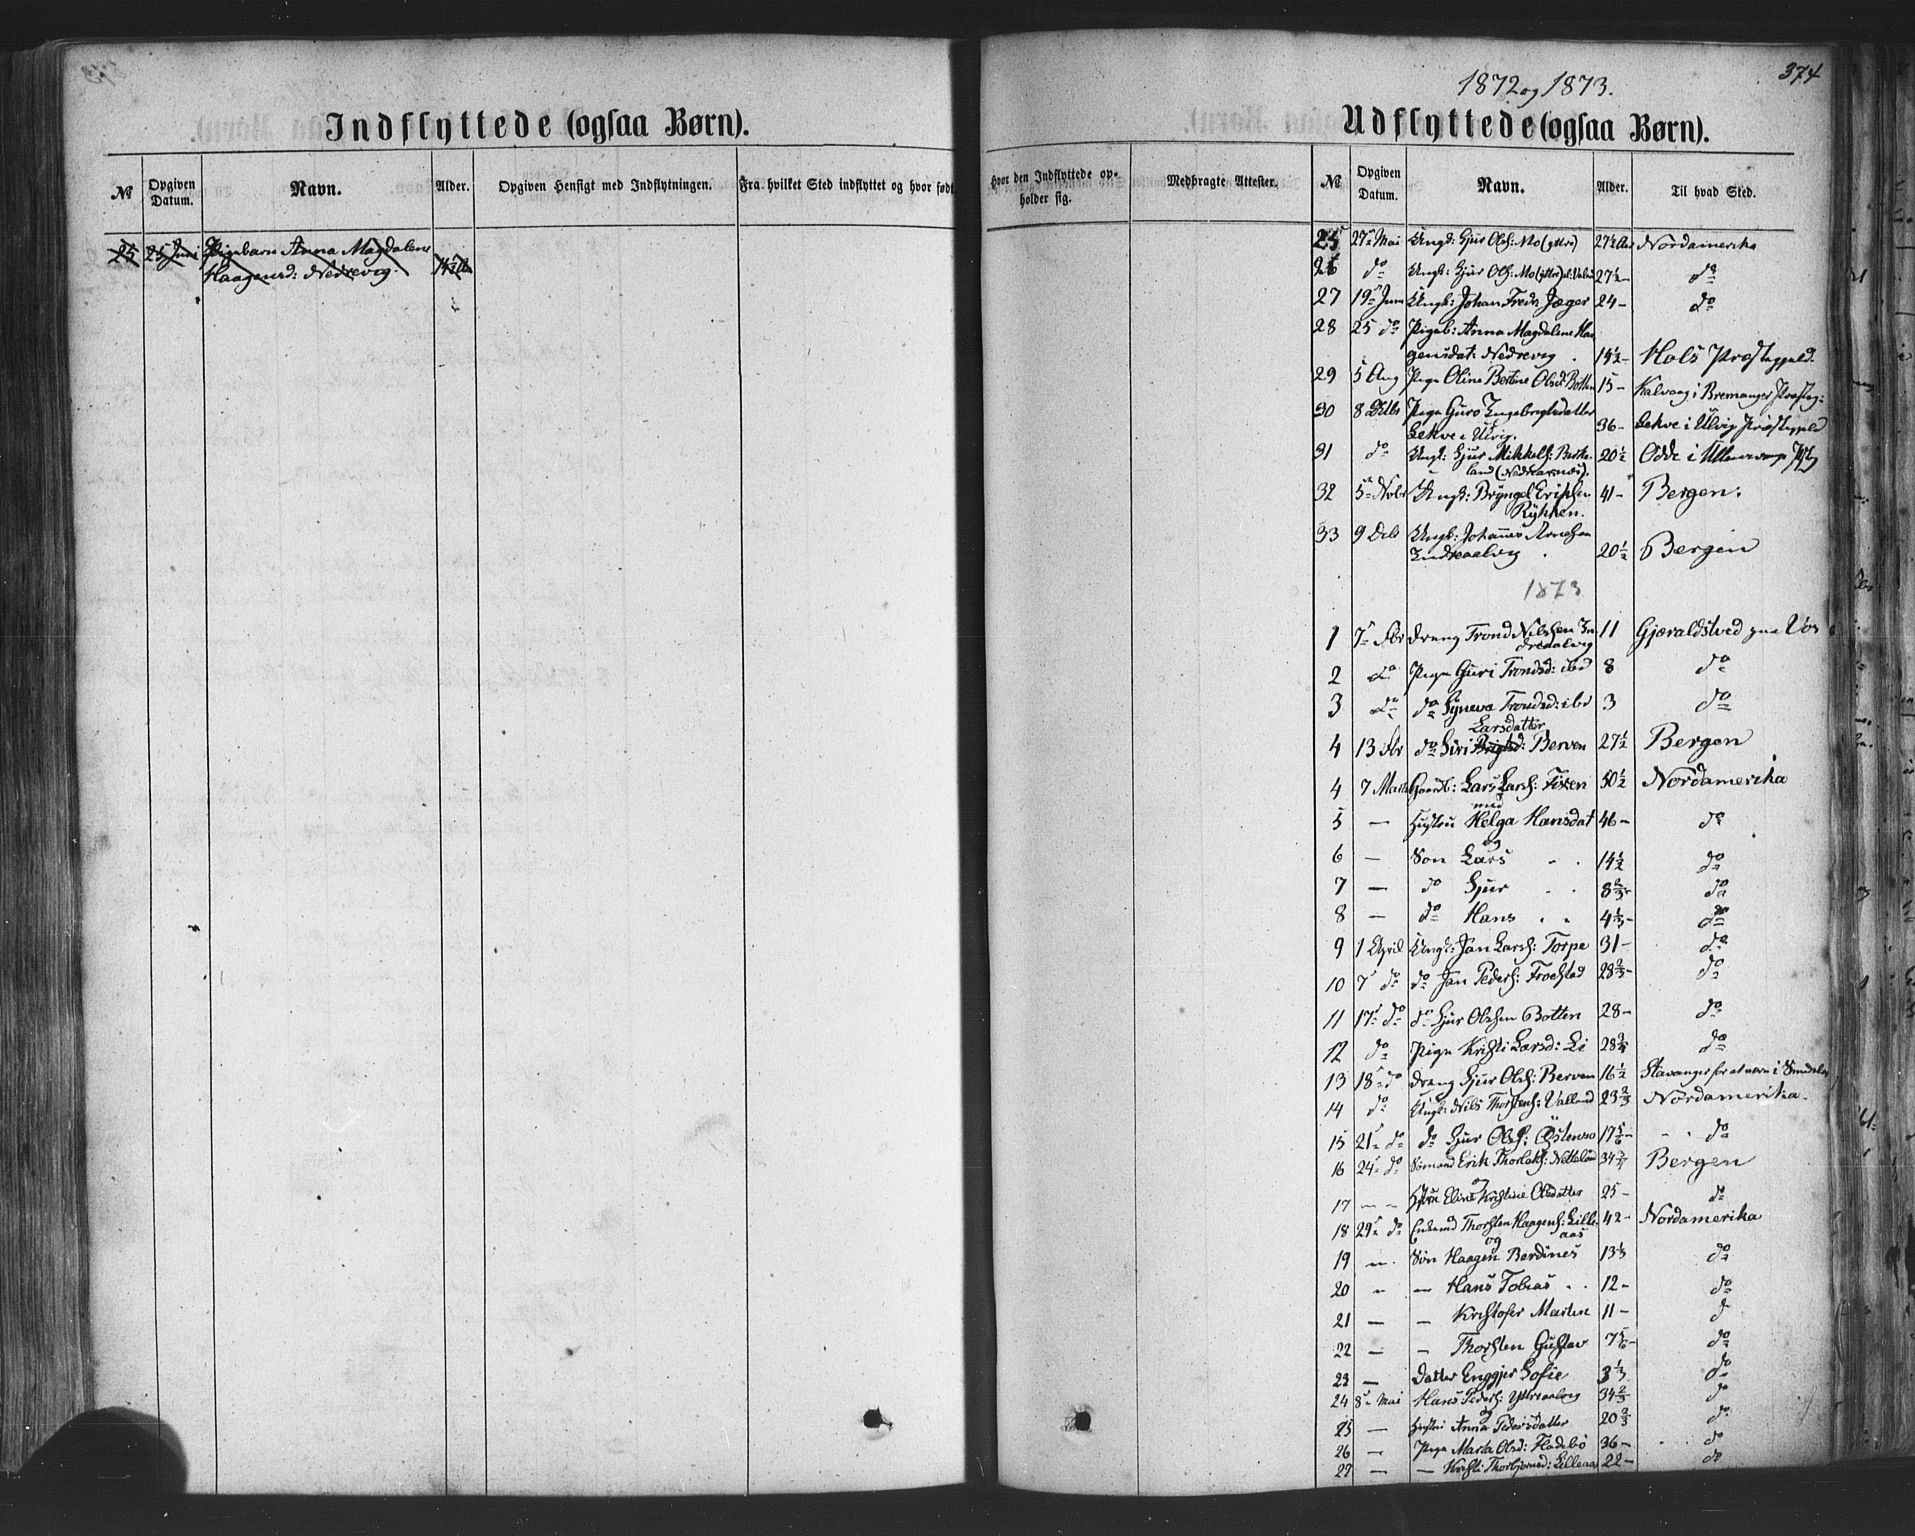 Indflyttede (ogsaa Børn).
№ Opgiven Datum. Navn. Alder. Opgiven Hensigt med Indflytningen. Fra hvilket Sted indflyttet og hvor født
25 25 Juni Pigebarn Anna Magdalene
Haagensd: Nedrevig. 14½ Aar
374
1872 og 1873.
Udflyttede (ogsaa Børn).
Hvor den Indflyttede opholder sig. Medbragte Attester. № Opgiven Datum. Navn. Alder. Til hvad Sted.
25 27 Mai Ungk: Sjur Ols: Mo (yttre) 27½ Aar Nordamerika
26 do Ungk: Sjur Ols: Mo (yttre) 27½ – do
27 19 Juni Ungk: Johan Fredr Jæger 24 – do
28 25 do Pigeb: Anna Magdalene Haa
gensdat: Nedrevig 14½ – Hols Præstegjeld.
29 5 Aug Pige Oline Bertine Olsd: Botten 15 – Kalvaag i Bremanger Præsteg:
30 8 Pige Guro Engebrigtsdatter
Lekve i Ulvig. 36 – Lekve i Ulvig Præstegjeld
31 do Ungk: Sjur Mikkels: Berte-
land (Nedreaarnes). 20½ Odde i Ullensvangs
32 5 Novbr Ungk: Bryngel Eriksen
Rykken. 41 – Bergen.
33 9 Deb Ungk: Johannes Arnesen
Indreaalvig 20½ Bergen
1873
1 7 Fbr Dreng Trond Nilssen In
dreaalvig 11 Gjæraldstved paa Vos
2 do Pige Guri Trondsd: ibd 8 do
3 do do Syneva Trondsd: ibd 3 do
Larsdatter
4 13 Fbr do Siri Brigtsd: Berven 27½ Bergen
4 7 Marts Gaardb: Lars Lars: Fixen 50½ Nordamerika
med
5 — Hustru Helga Hansdat 46 – do
og
6 — Søn Lars 14½ do
7 — do Sjur 8⅔ – do
8 — do Hans 4⅓ – do
9 1 April Ungk: Jon Lars: Torpe 31 – do
10 7 do do Jon Peders: Froestad 28⅔ – do
11 17 do do Sjur Olssen Botten 28 – do
12 do Pige Kristi Larsd: Li 28¾ do
13 18 do Dreng Sjur Ols: Berven 16½ Stavanger for at være i Smedelære
14 do Ungk: Nils Thorstens: Valland 23⅔ Nordamerika.
15 21 do do Sjur Ols: Østensø 17⅚ – do
16 24 do Sømand Erik Thorlaks: Netteland 34¾ Bergen
og
17 — — Hstru Eline Kristine Olsdatter 25 – do
18 29 do Enkemd Thorsten Haagens: Lille-
aas 42 – Nordamerika
og
19 — Søn Haagen Berdines 13⅓ do
20 — — Hans Tobias 12 – do
21 — — Kristofer Marten 11 – d
22 — — Thorsten Gustav 7⅚ – do
23 — Datter Enggjer Sofie 3⅓ do
24 8 Mai Hans Peders: Yttreaalvig 34⅔ do
og
25 — Hustru Anna Pedersdatter 20⅔ do
26 — Pige Marta Olsd: Fladebø 36 – do
27 — — Kristi Thorbjørnsd: Lilleaas 22 – do